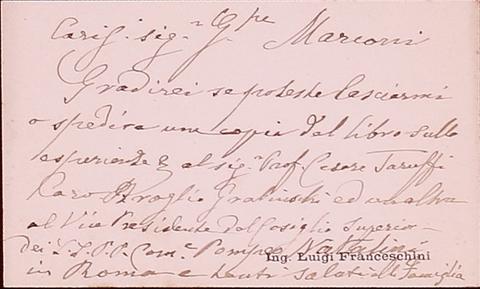 Cariss. sig.r G.pe Marconi
Gradirei se poteste lasciarmi
o spedire una copia del libro sulle
esperienze & al sig.r Prof. Cesare Taruffi
ed un altra
al Vice Presidente del Cosiglio Superior
dei L.L.P.P. Com.e Pompeo
Ing. Luigi Franceschini
in Roma e tanti saluti alla Famiglia